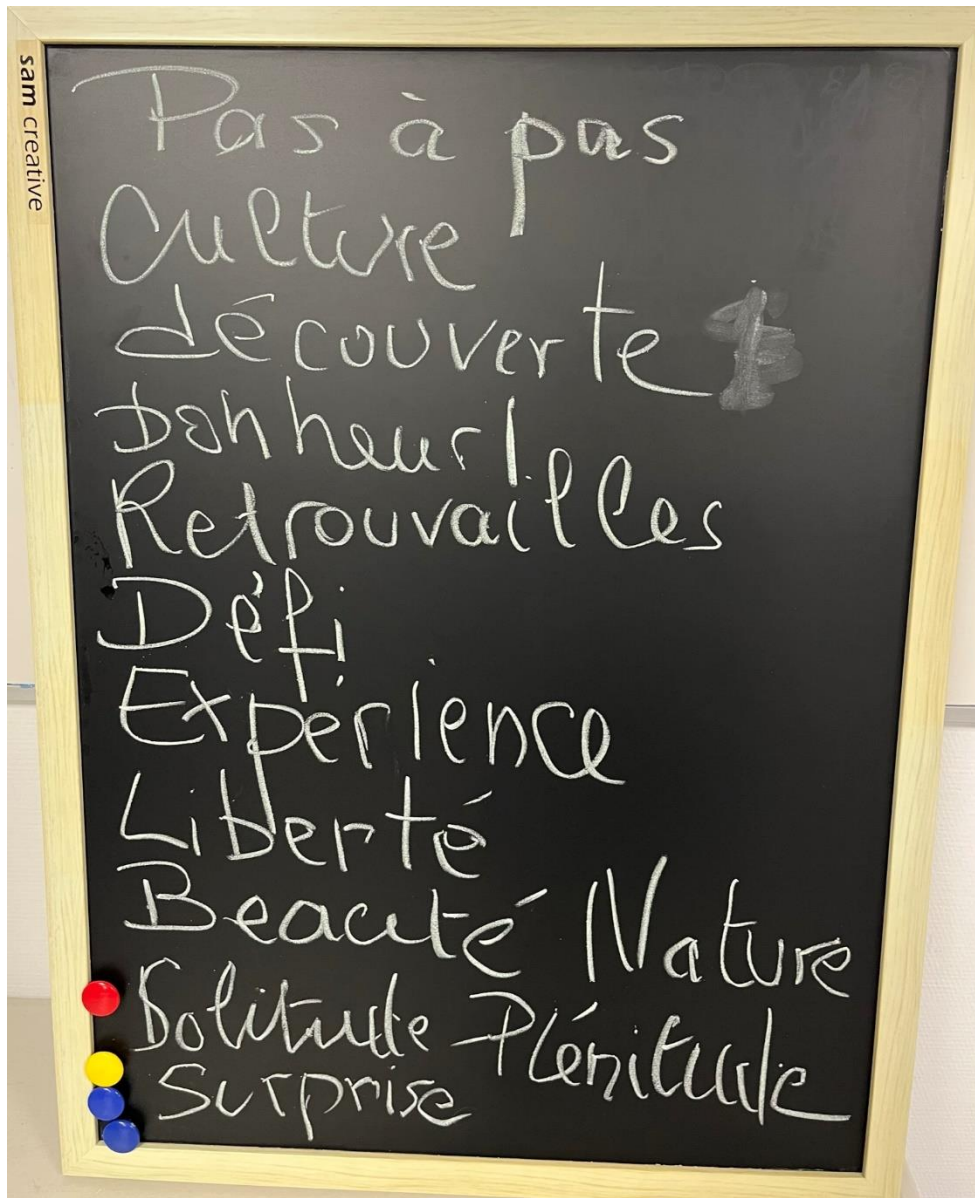 sam creative
Pas à pas
Culture
découverte
bonheur!
Retrouvailles
Défi
Expérience
Liberté
Beauté Nature
Solitude Plénitude
Surprise